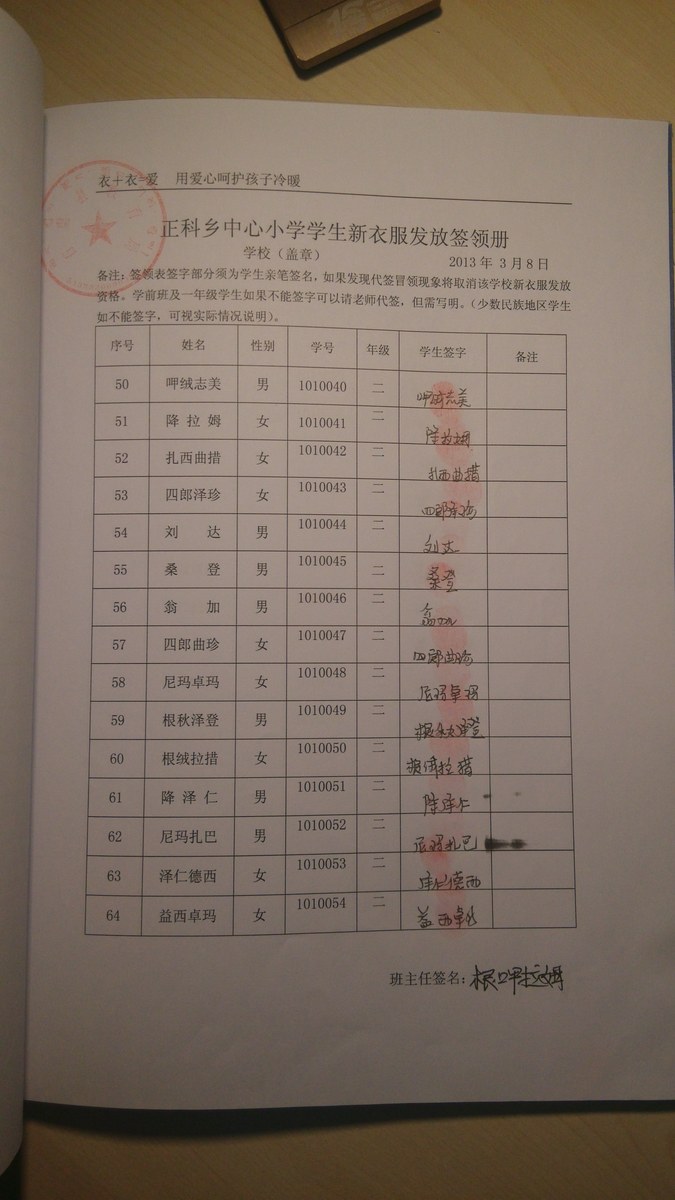 衣+衣=爱 用爱心呵护孩子冷暖
正科乡中心小学学生新衣服发放签领册
学校（盖章） 2013 年 3 月 8 日
备注：签领表签字部分须为学生亲笔签名，如果发现代签冒领现象将取消该学校新衣服发放
资格。学前班及一年级学生如果不能签字可以请老师代签，但需写明。（少数民族地区学生
如不能签字，可视实际情况说明）。
序号 姓名 性别 学号 年级 学生签字 备注
50 呷绒志美 男 1010040 二 呷绒志美
51 降拉姆 女 1010041 二 降拉姆
52 扎西曲措 女 1010042 二 扎西曲措
53 四郎泽珍 女 1010043 二 四郎泽珍
54 刘达 男 1010044 二 刘达
55 桑登 男 1010045 二 桑登
56 翁加 男 1010046 二 翁加
57 四郎曲珍 女 1010047 二 四郎曲珍
58 尼玛卓玛 女 1010048 二 尼玛卓玛
59 根秋泽登 男 1010049 二 根秋泽登
60 根绒拉措 女 1010050 二 根绒拉措
61 降泽仁 男 1010051 二 降泽仁
62 尼玛扎巴 男 1010052 二 尼玛扎巴
63 泽仁德西 女 1010053 二 泽仁德西
64 益西卓玛 女 1010054 二 益西卓玛
班主任签名：根呷拉姆